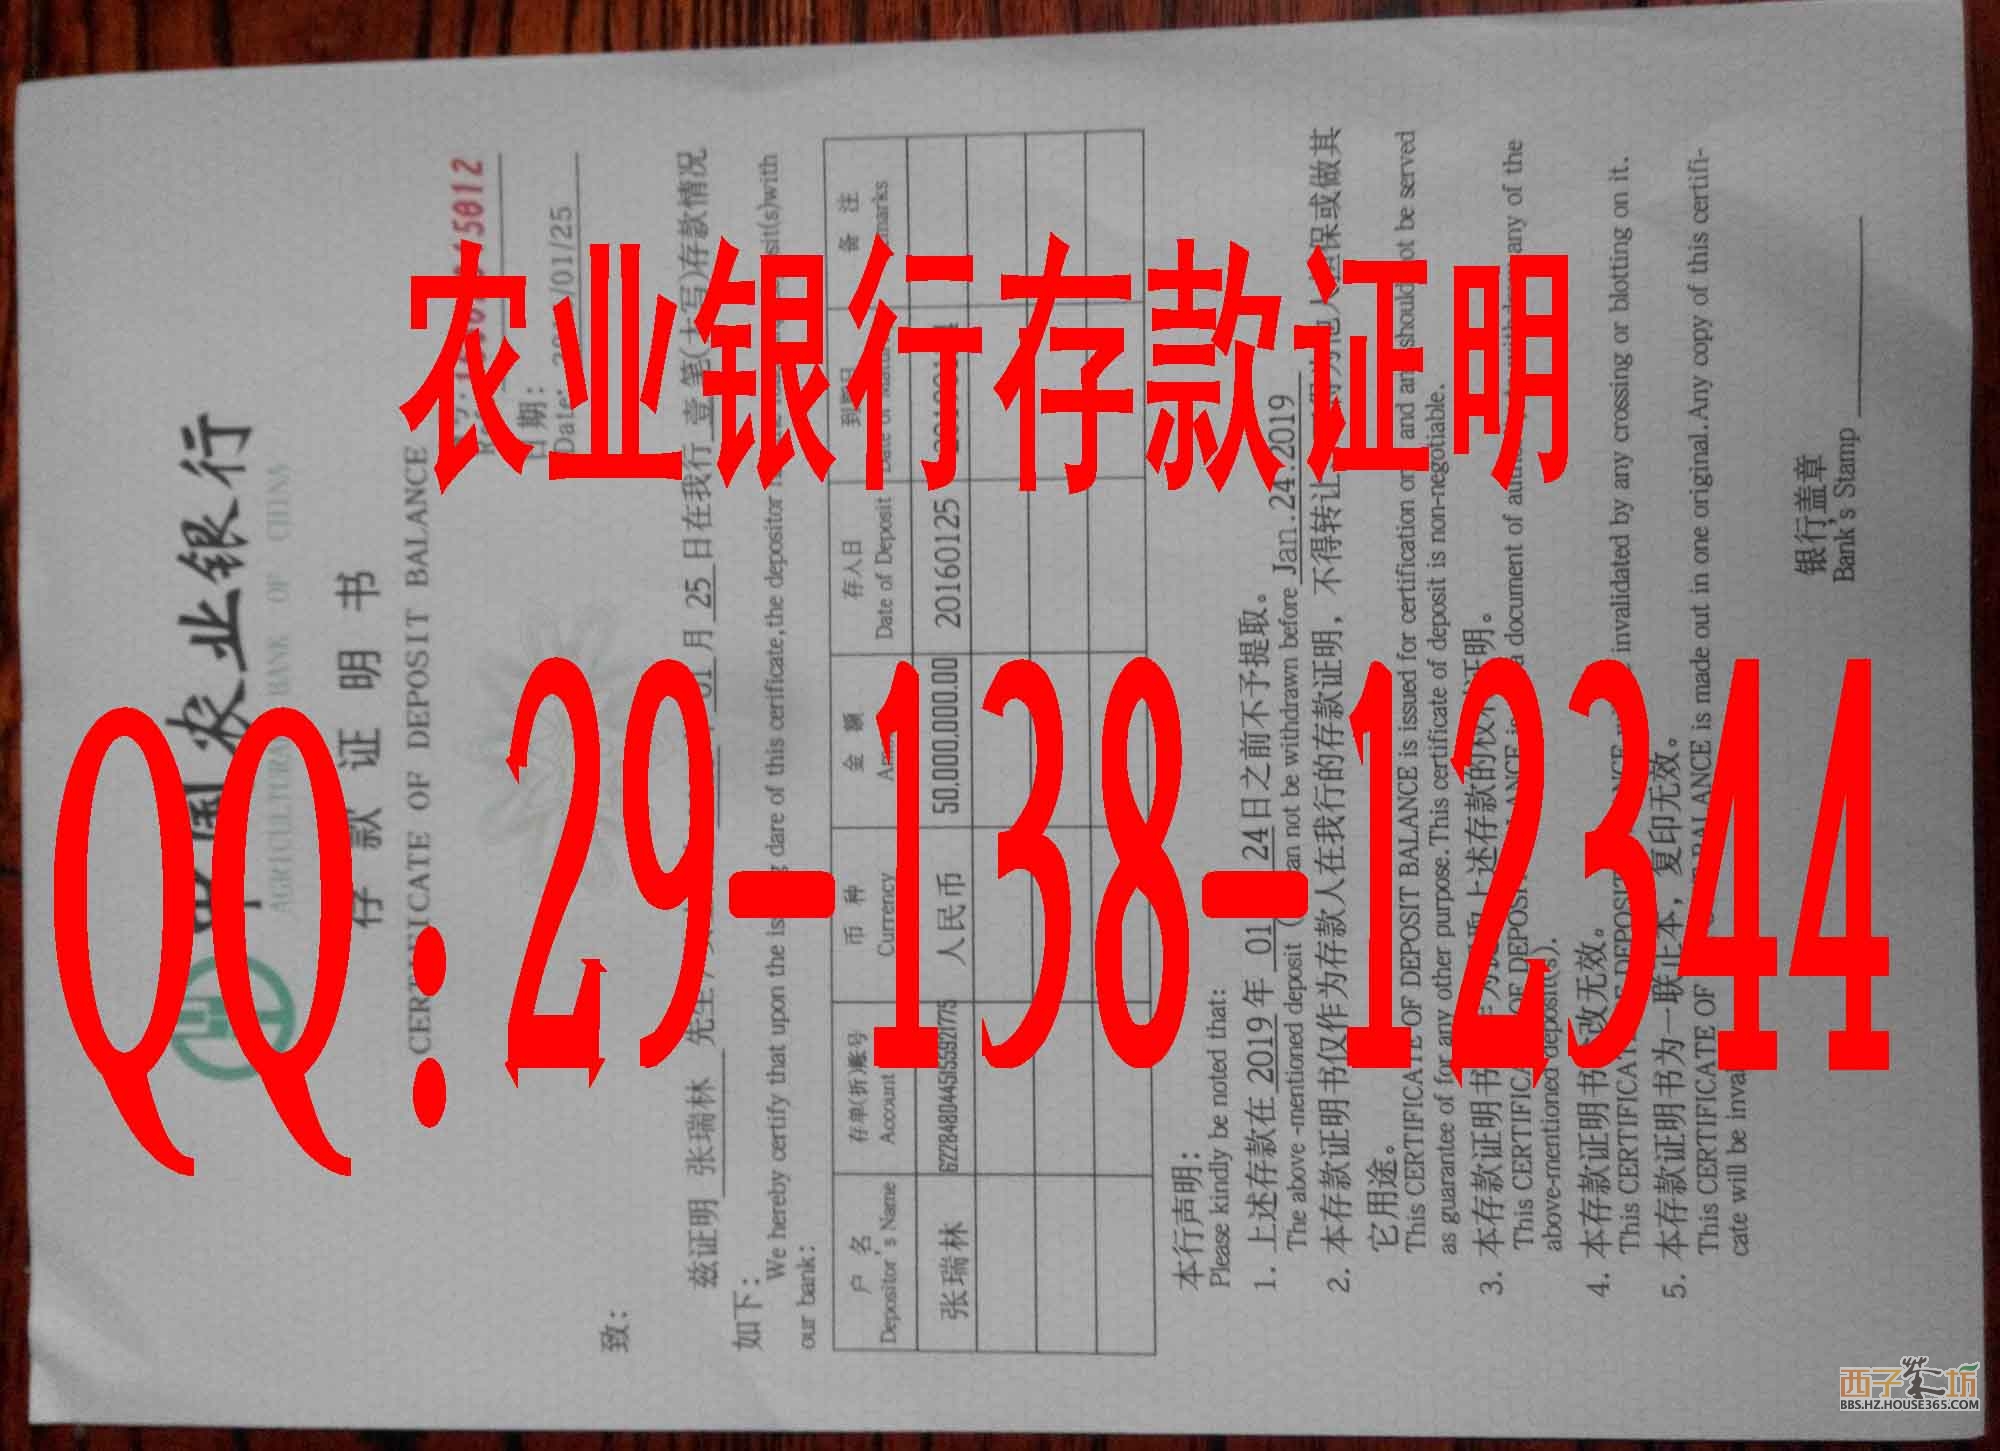 农业银行存款证明
QQ:29-138-12344
中国农业银行
AGRICULTURAL BANK OF CHINA
存款证明书
CERTIFICATE OF DEPOSIT BALANCE
日期:
Date: /01/25
致:
兹证明 张瑞林 先生 01 月 25 日在我行 壹 笔(大写)存款情况
如下:
We hereby certify that upon the dare of this cerificate,the depositor with
our bank:
户名 存单(折)账号 币种 金额 存入日 到期日 备注
Depositor's Name Account Currency Date of Deposit
张瑞林 6228480445155921775 人民币 50.000.000.00 20160125
本行声明:
Please kindly be noted that:
1. 上述存款在 2019 年 01 24 日之前不予提取。
The above-mentioned deposit can not be withdrawn before Jan.24.2019
2. 本存款证明书仅作为存款人在我行的存款证明,不得转让 为他人担保或做其
它用途。
This CERTIFICATE OF DEPOSIT BALANCE is issued for certification and should not be served
as guarantee of for any other purpose.This certificate of deposit is non-negotiable.
3. 本存款证明书 上述存款的权 证明。
This CERTIFICATE OF DEPOSIT a document of any of the
above-mentioned deposit(s).
4. 本存款证明书 改无效。
This CERTIFICATE DEPOSIT invalidated by any crossing or blotting on it.
5. 本存款证明书为一联正本,复印无效。
This CERTIFICATE OF BALANCE is made out in one original.Any copy of this certifi-
cate will be inva
银行盖章
Bank's Stamp
西子茶坊
BBS.HZ.HOUSE365.COM